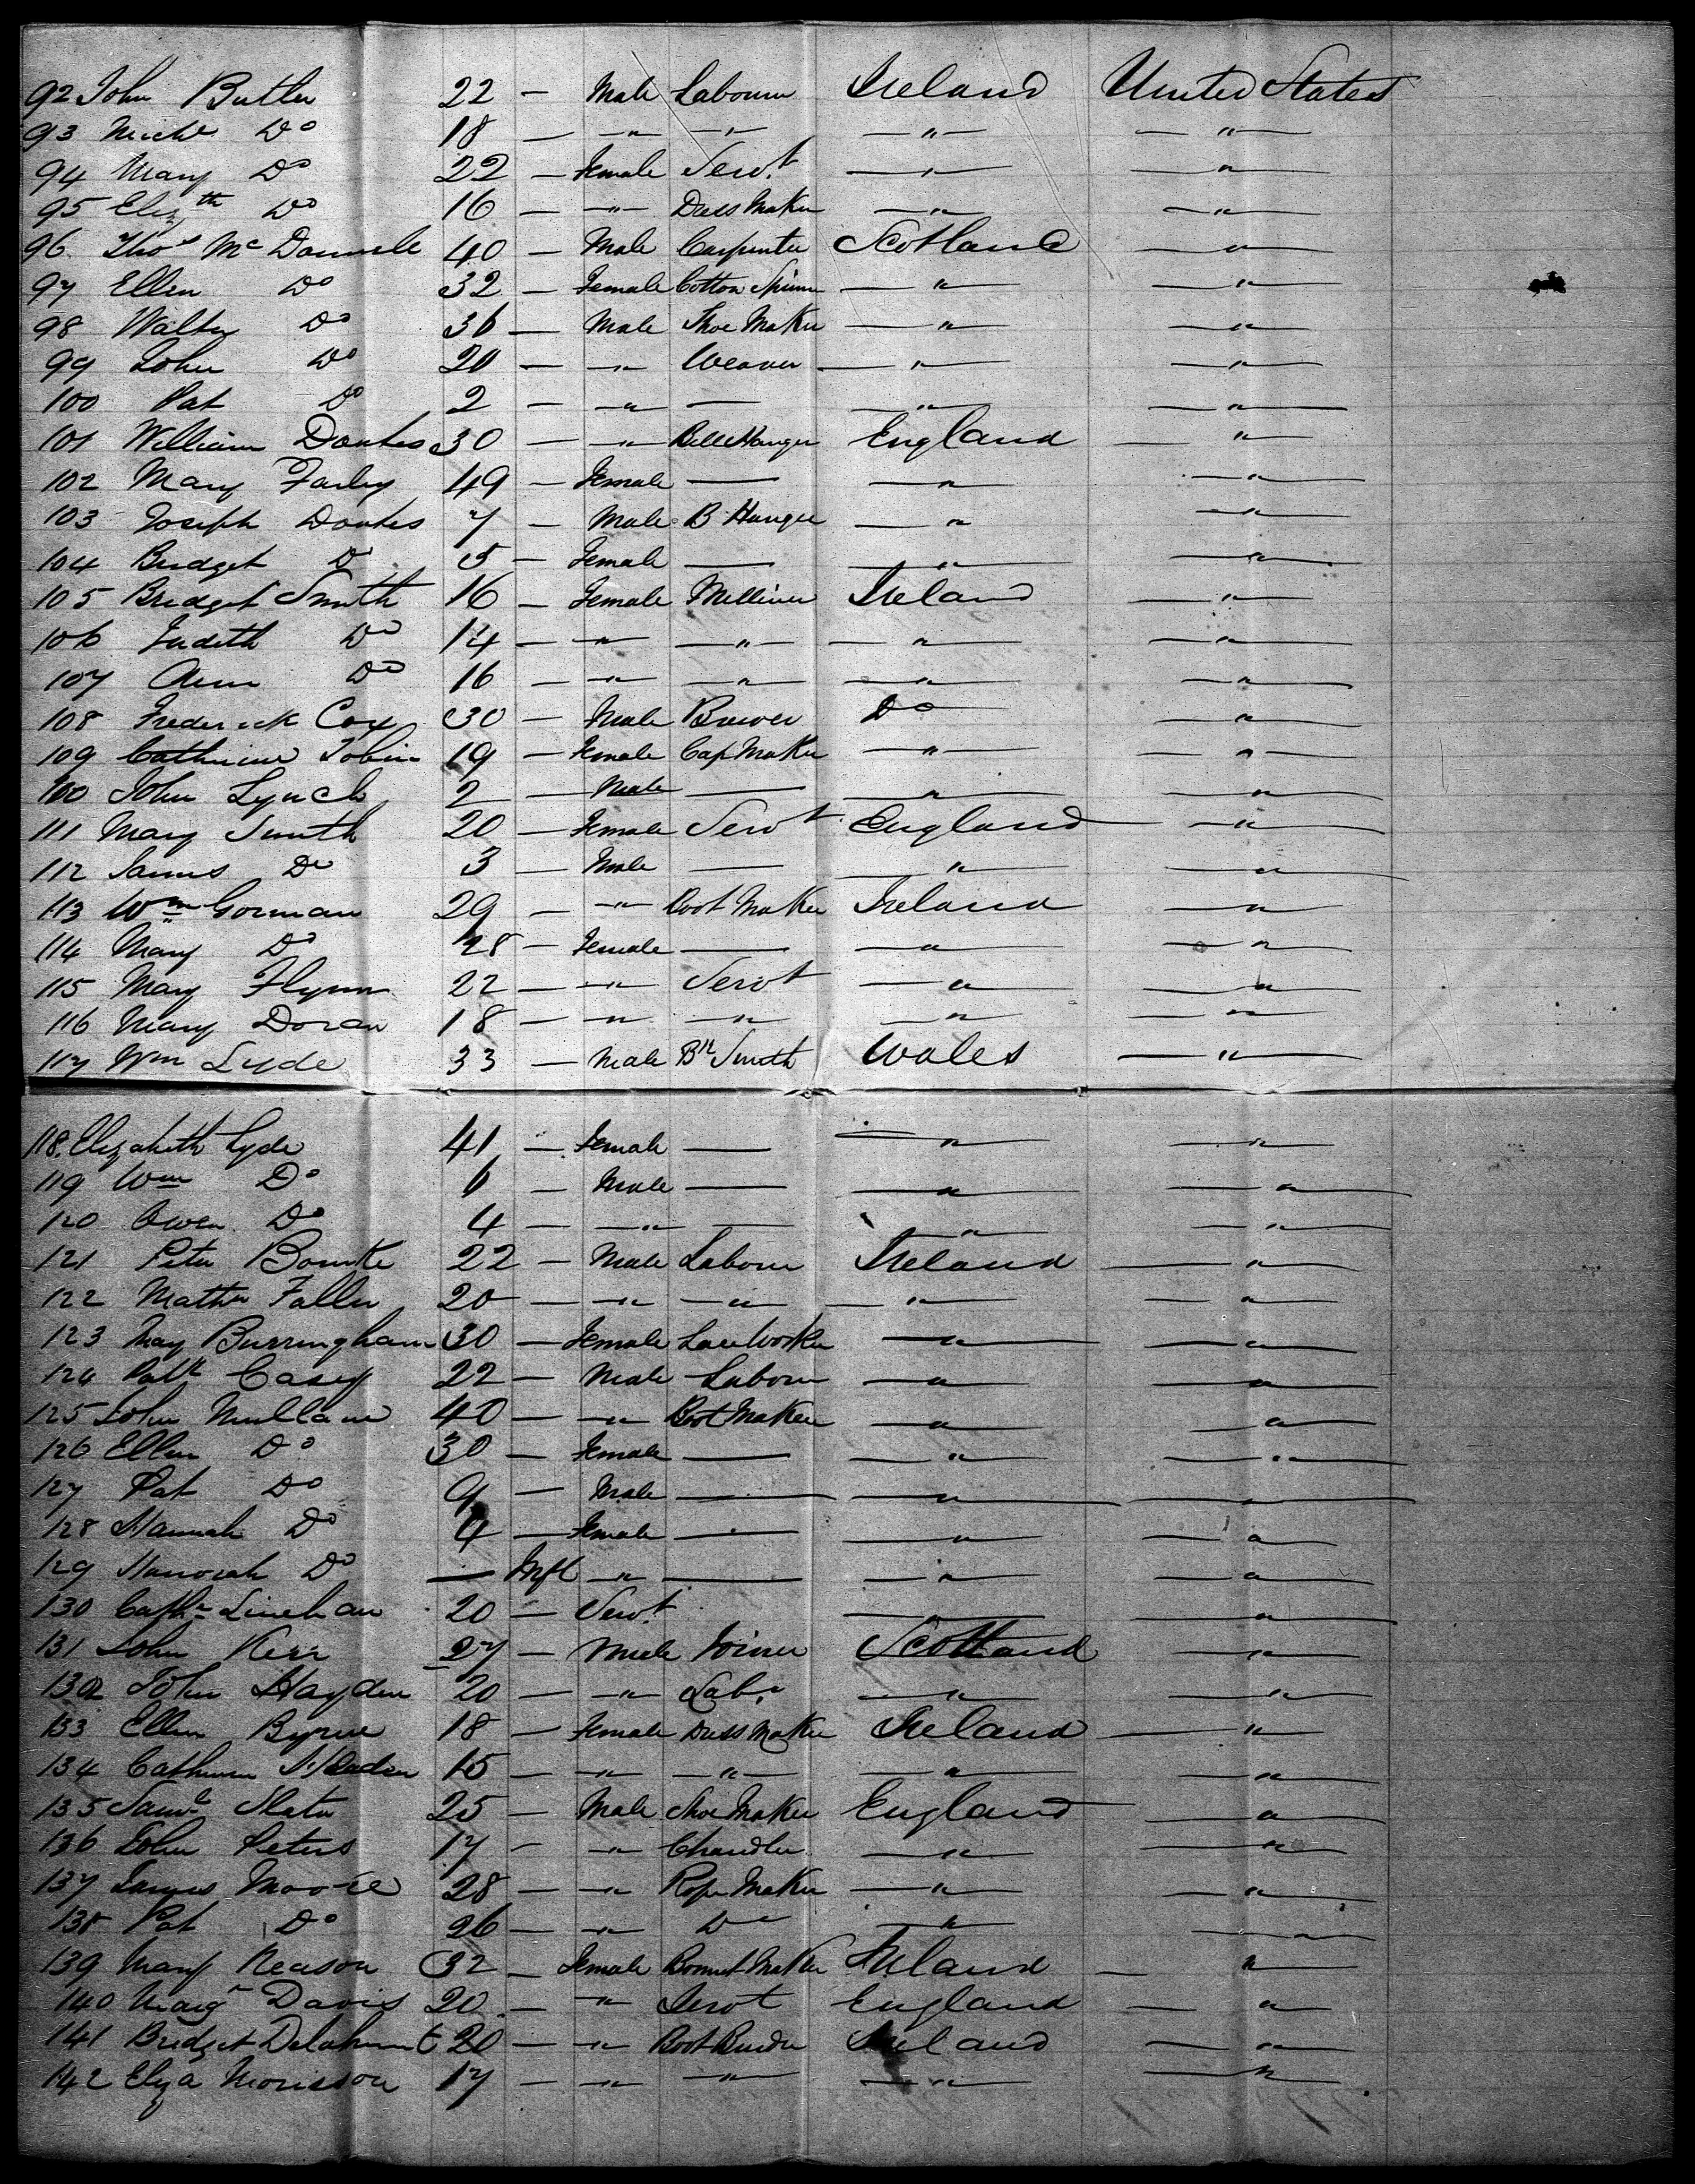 92 John Butler 22 — Male Labourer Ireland United States
93 Michl Do 18 — — " — — " — — " — — " —
94 Mary Do 22 — Female Servt — " — — " —
95 Elizth Do 16 — — " — Dress Maker — " — — " —
96 Thos Mc Donnell 40 — Male Carpenter Scotland — " —
97 Ellen Do 32 — Female Cotton Spinner — " — — " —
98 Walter Do 36 — Male Shoe Maker — " — — " —
99 John Do 20 — — " — Weaver — " — — " —
100 Pat Do 2 — — " — — — " — — " —
101 William Doukes 30 — — " — Bell Hanger England — " —
102 Mary Farley 49 — Female — — " — — " —
103 Joseph Doukes 7 — Male B Hanger — " — — " —
104 Bridget Do 5 — Female — — " — — " —
105 Bridget Smith 16 — Female Milliner Ireland — " —
106 Judith Do 14 — — " — — " — — " — — " —
107 Ann Do 16 — — " — — " — — " — — " —
108 Frederick Cox 30 — Male Brewer Do — " —
109 Catherine Tobin 19 — Female Cap Maker — " — — " —
100 John Lynch 2 — Male — — " — — " —
111 Mary Smith 20 — Female Servt England — " —
112 James Do 3 — Male — — " — — " —
113 Wm Gorman 29 — — " — Boot Maker Ireland — " —
114 Mary Do 28 — Female — — " — — " —
115 Mary Flynn 22 — — " — Servt — " — — " —
116 Mary Doran 18 — — " — — " — — " — — " —
117 Wm Lyde 33 — Male Bk Smith Wales — " —
118. Elizabeth Lyde 41 — Female — — " — — " —
119 Wm Do 6 — Male — — " — — " —
120 Owen Do 4 — — " — — — " — — " —
121 Peter Bourke 22 — Male Labourer Ireland — " —
122 Mathw Faller 20 — — " — — " — — " — — " —
123 May Burringham 30 — Female Lace Worker — " — — " —
124 Patk Casey 22 — Male Labour — " — — " —
125 John Mullane 40 — — " — Boot Maker — " — — " —
126 Ellen Do 30 — Female — — " — — " —
127 Pat Do 9 — Male — — " — — " —
128 Hannah Do 4 — Female — — " — — " —
129 Honorah Do — Inft — " — — — " — — " —
130 Cathe Linehan 20 — Servt — " — — " —
131 John Kerr 27 — Male Joiner Scotland — " —
132 John Hayden 20 — — " — Labr — " — — " —
133 Ellen Byrne 18 — Female Dress Maker Ireland — " —
134 Catherine 15 — — " — — " — — " — — " —
135 Saml Slater 25 — Male Shoe Maker England — " —
136 John Peters 17 — — " — Chandler — " — — " —
137 James Moore 28 — — " — Rope Maker — " — — " —
138 Pat Do 26 — — " — Do — " — — " —
139 Mary Reason 32 — Female Bonnet Maker Ireland — " —
140 Margt Davis 20 — — " — Servt England — " —
141 Bridget Delahunt 20 — — " — Boot Binder Ireland — " —
142 Eliza Morisson 17 — — " — — " — — " — — " —